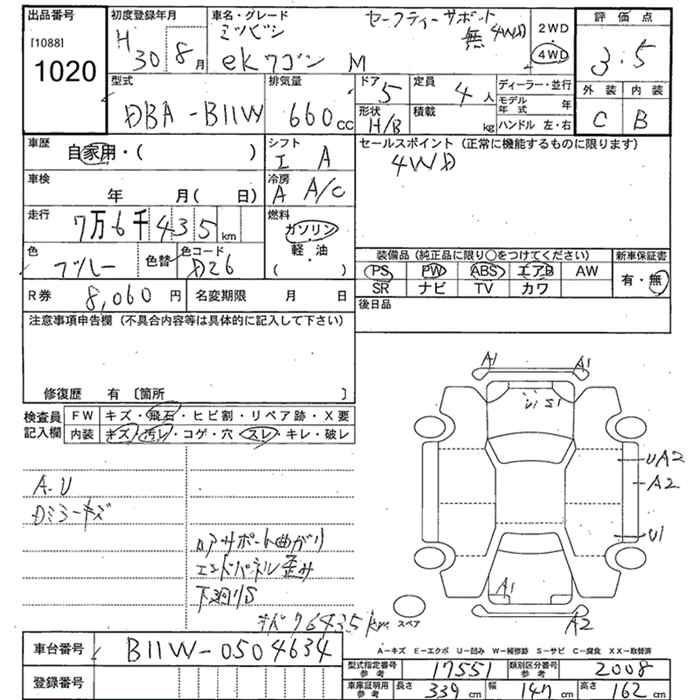 出品番号 初度登録年月 車名・グレード セーフティーサポート 2WD 評価点
[1088] H 30 8月 ミツビシ 無 4WD 4WD 3.5
1020 ekワゴン M 外装 内装
型式 排気量 ドア 定員 ディーラー・並行 C B
DBA-B11W 660cc 5 4人 モデル年式 年
形状 積載 ハンドル 左・右
H/B kg
車歴 シフト セールスポイント(正常に機能するものに限ります)
自家用・( ) I A 4WD
車検 冷房
年 月( 日) A A/C
走行 燃料
7万6千435km ガソリン
色 色替 色コード 軽・油 装備品(純正品に限り○をつけてください) 新車保証書
ブルー D26 ( ) PS PW ABS エアB AW 有・無
R券 8,060円 名変期限 月 日 SR ナビ TV カワ
注意事項申告欄(不具合内容等は具体的に記入して下さい) 後日品
修復歴 有〔箇所 〕
検査員記入欄 FW キズ・飛石・ヒビ割・リペア跡・X要
内装 キズ・汚レ・コゲ・穴・スレ・キレ・破レ
A1 A1
S1
UA2
A2
U1
A.U
Dミラーキズ
コアサポート曲がり
エンドパネル歪み
下廻りS
A1
スペア A2
76435k
A-キズ E-エクボ U-凹み W-補修跡 S-サビ C-腐食 XX-取替済
車台番号 B11W-0504634
型式指定番号 参考 17551 類別区分番号 参考 2008
登録番号 車庫証明用 参考 長さ 339cm 幅 147cm 高さ 162cm